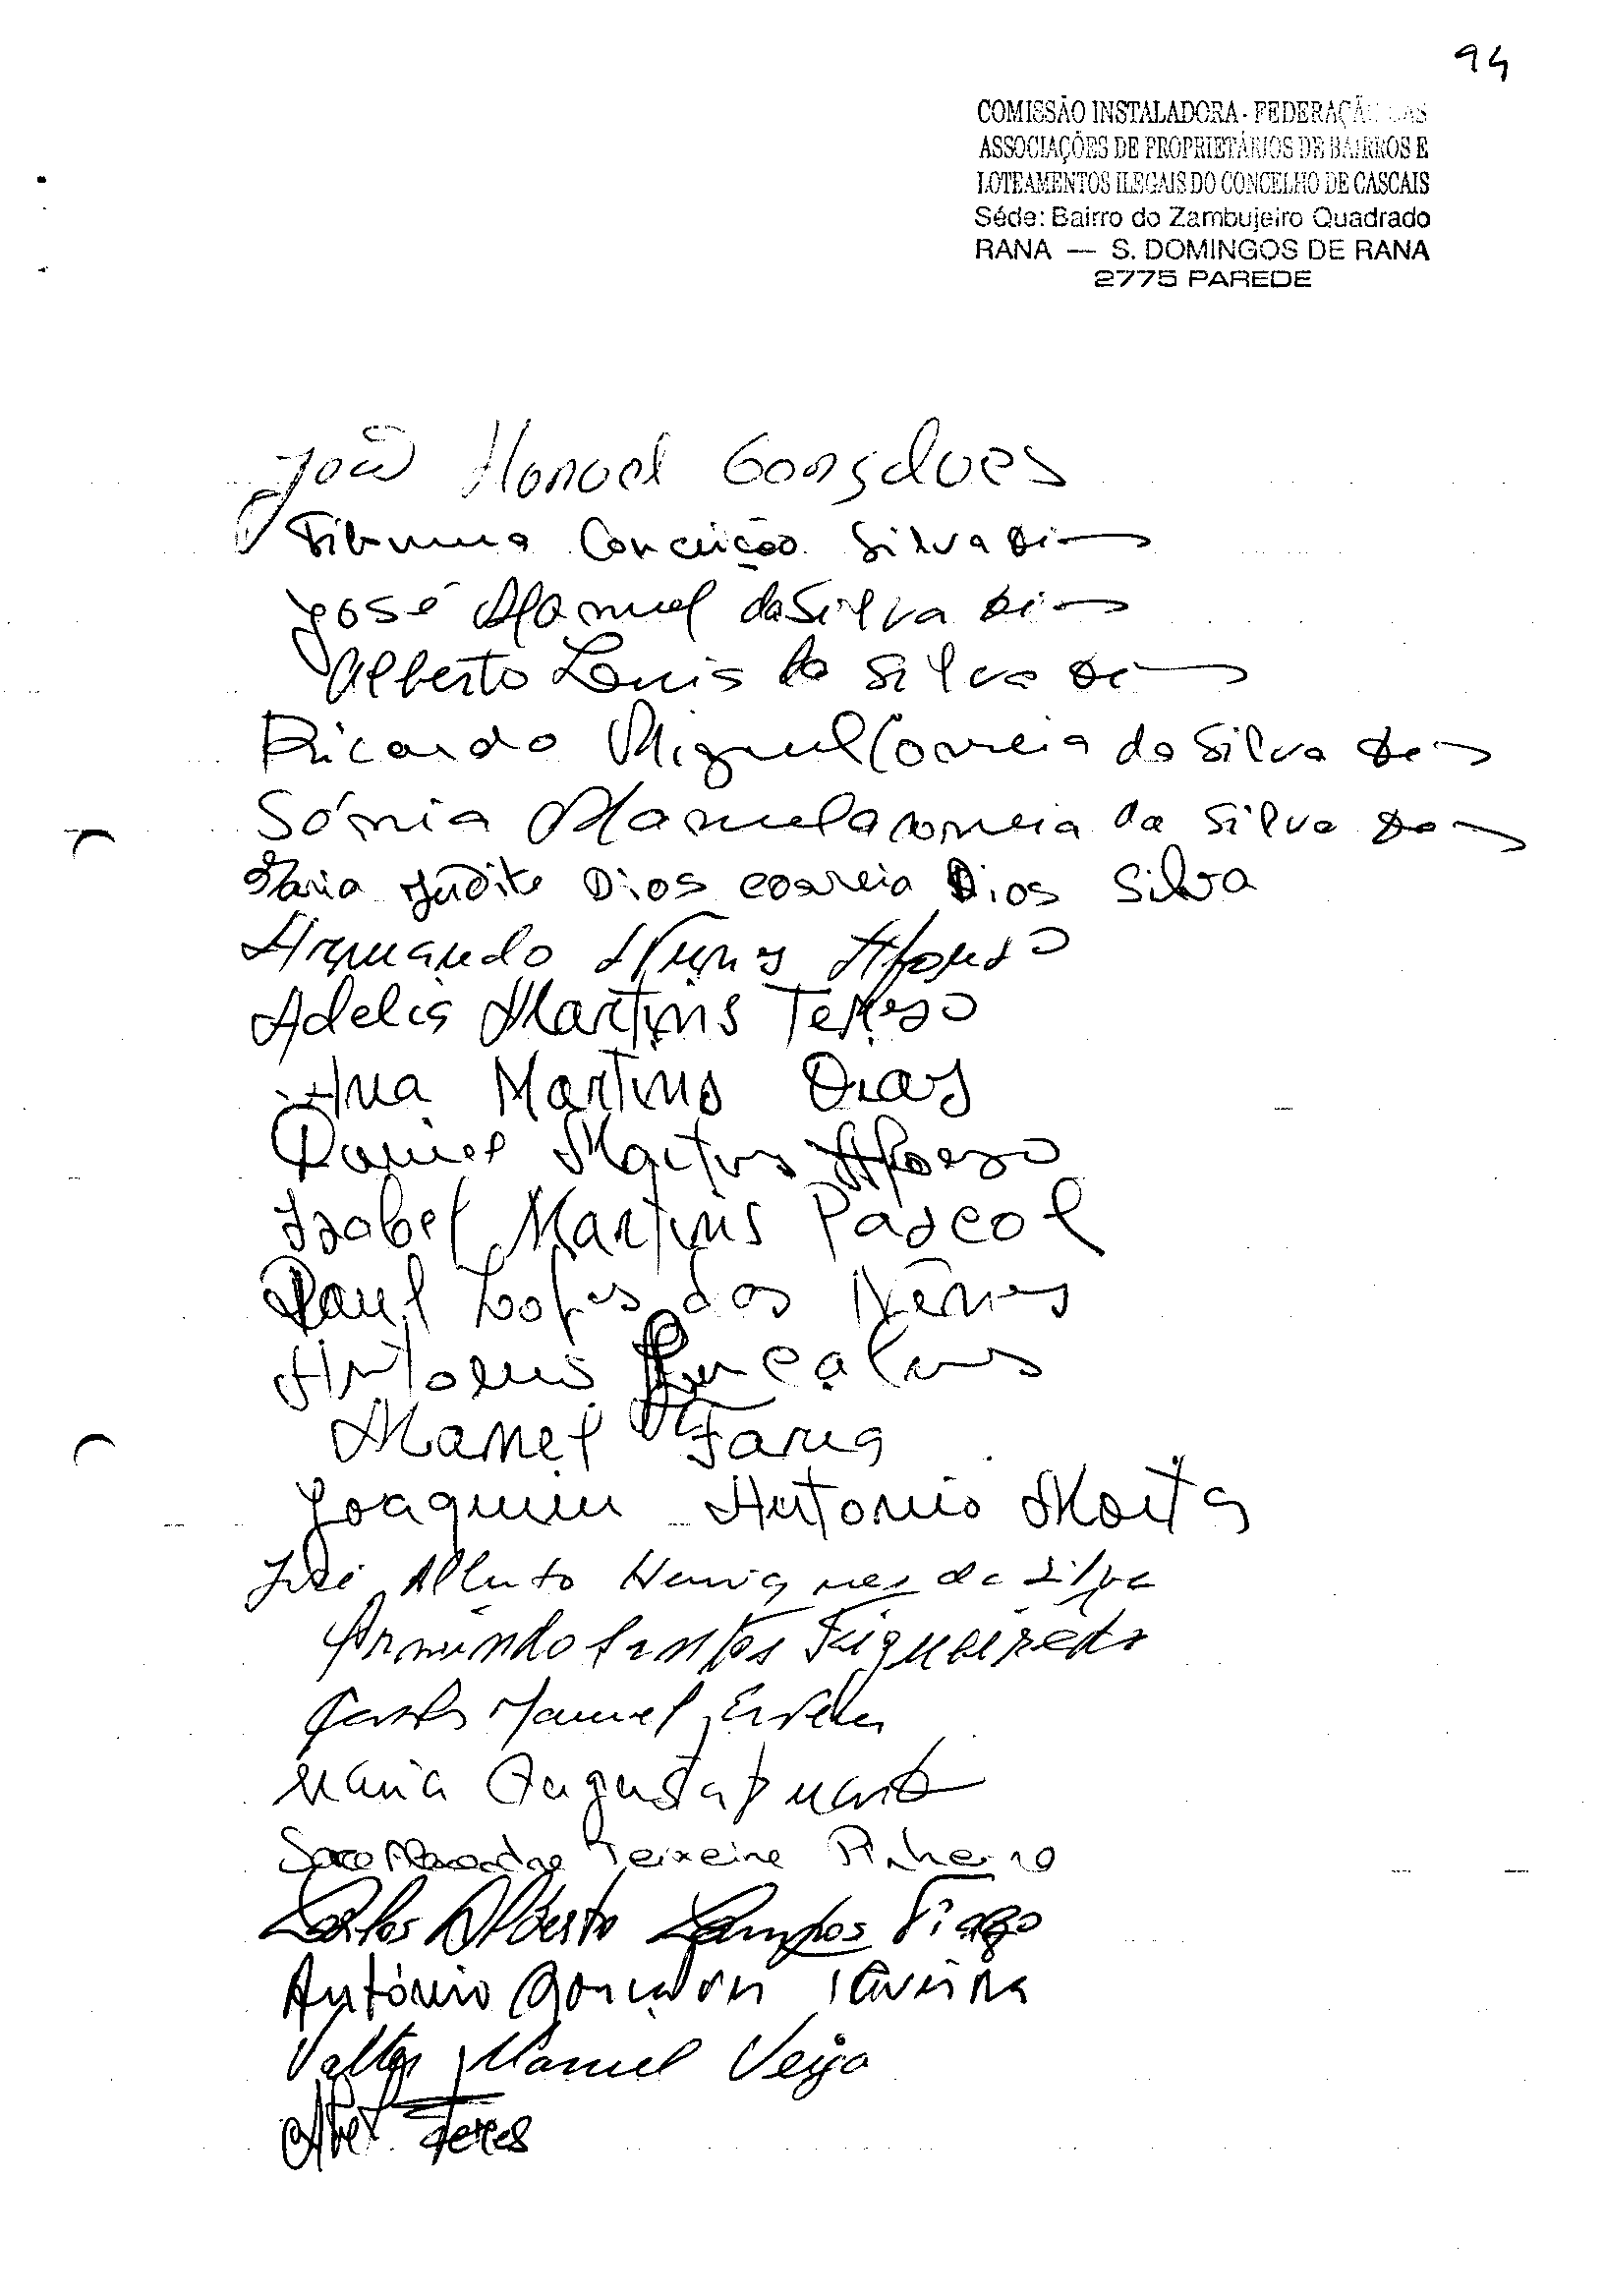 94
COMISSÃO INSTALADORA - FEDERAÇÃO DAS
ASSOCIAÇÕES DE PROPRIETÁRIOS DE BAIRROS E
LOTEAMENTOS ILEGAIS DO CONCELHO DE CASCAIS
Séde: Bairro do Zambujeiro Quadrado
RANA — S. DOMINGOS DE RANA
2775 PAREDE
João Manoel Gonçalves
Conceição Silva Dias
José Manuel da Silva Dias
Alberto Luis da Silva Dias
Ricardo Miguel Correia da Silva Dias
Sónia Manuela Correia da Silva Dias
Maria Judite Dios Correia Dios Silva
Armando Nunes Afonso
Martins
Ana Martins Dias
Daniel Martins Afonso
Izabel Martins Pascol
Paul Lopes dos
Antonio Gonçalves
Manel Faria
Joaquim Antonio Moita
José Alberto Henriques da Silva
Armindo Santos Figueiredo
Carlos Manuel
Maria Augusta Duarte
Teixeira Pinheiro
Carlos Alberto Campos Tiago
António Gonçalves
Valter Manuel Veiga
Abel